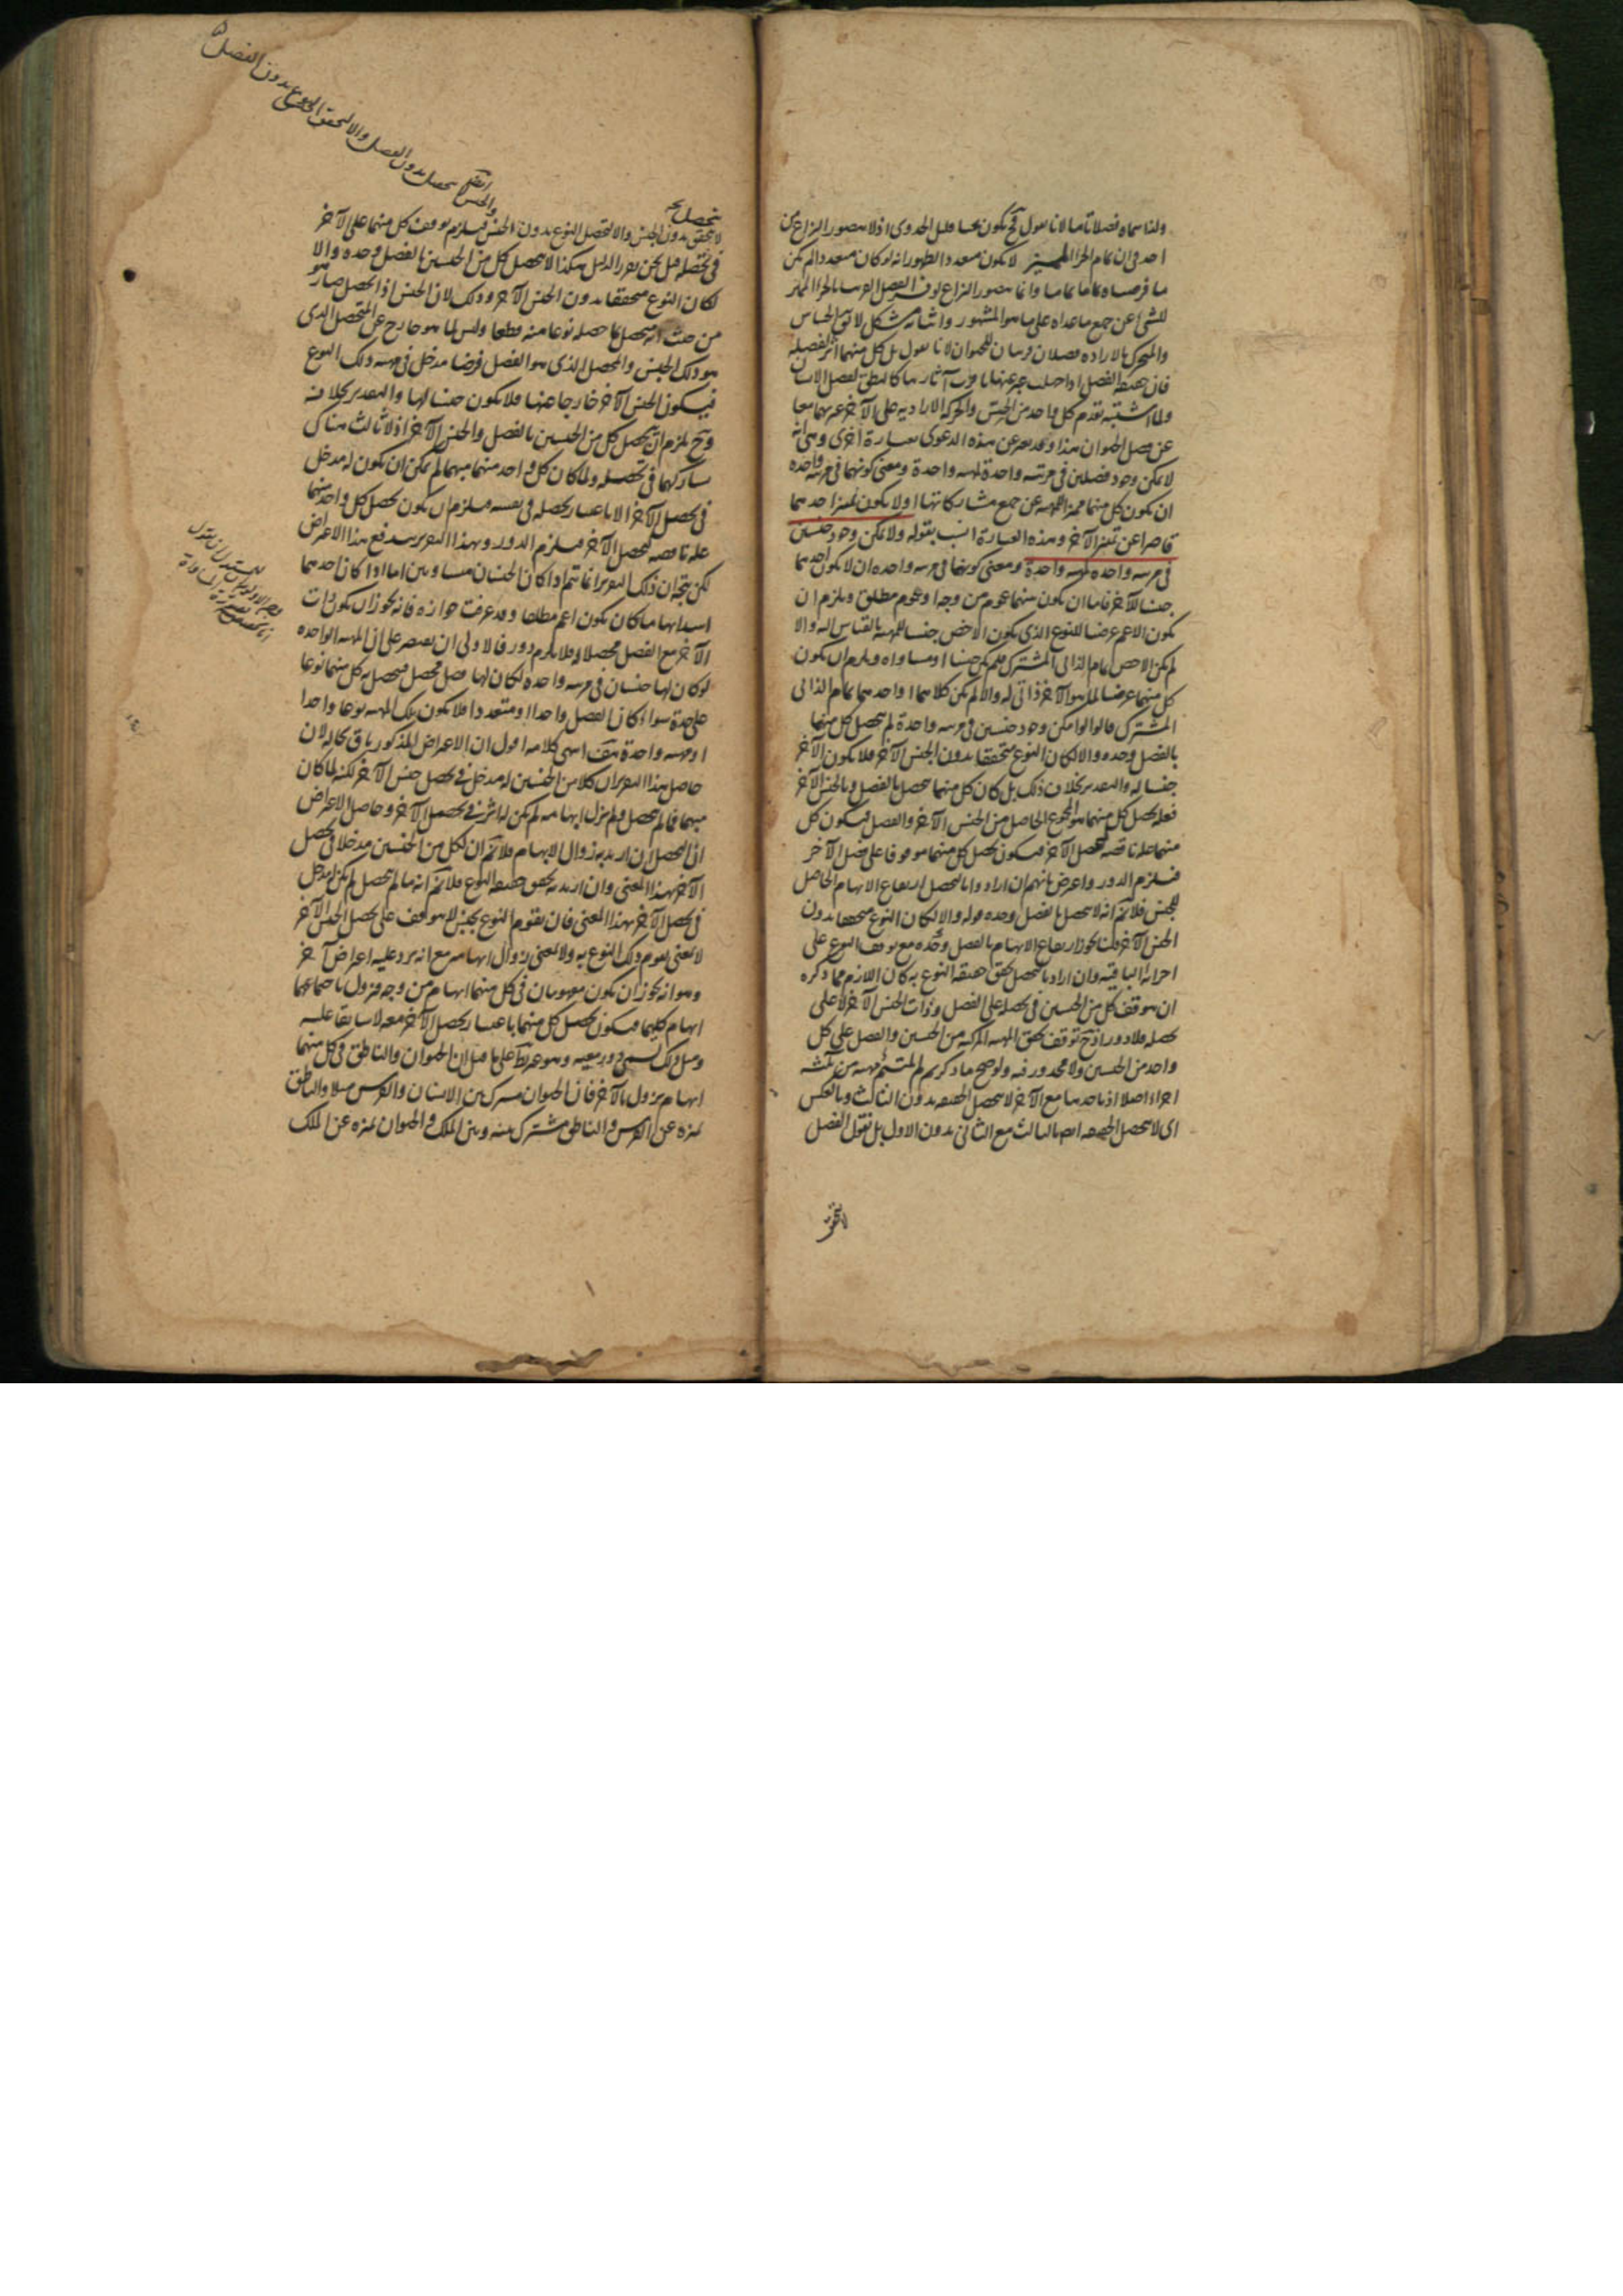 ولذا سماه فصلا تاما لانا نقول فح يكون بحثنا قليل الجدوى اذ لا يتصور النزاع من
احد في ان تمام الجزء المميز لا يكون متعددا لظهور انه لو كان متعددا لم يكن
ما فرضناه تماما تماما وانما يتصور النزاع لو فسر الفصل القريب بالجزء المميز
للشيء عن جميع ما عداه على ما هو المشهور واثباته مشكل لا يق الحساس
والمتحرك بالارادة فصلان قريبان للحيوان لانا نقول بل كل منهما اثر لفصله
فان حقيقة الفصل اذا جهلت عبر عنها باقرب آثارها كالنطق لفصل الانسان
ولما اشتبه تقدم كل واحد من الحس والحركة الارادية على الآخر عبر بهما معا
عن فصل الحيوان هذا وقد يعبر عن هذه الدعوى بعبارة اخرى وهي انه
لا يمكن وجود فصلين في مرتبة واحدة لمهية واحدة ومعنى كونهما في مرتبة واحدة
ان يكون كل منهما مميزا للمهية عن جميع مشاركاتها او لا يكون تميز احدهما
قاصرا عن تميز الآخر وهذه العبارة انسب بقوله ولا يمكن وجود جنسين
في مرتبة واحدة لمهية واحدة ومعنى كونهما في مرتبة واحدة ان لا يكون احدهما
جنسا للآخر فاما ان يكون بينهما عموم من وجه او عموم مطلق ويلزم ان
يكون الاعم عرضا للنوع الذي يكون الاخص جنسا للمهية بالقياس اليه والا
لم يكن الاخص تمام الذاتي المشترك فلم يكن جنسا او مساواة ويلزم ان يكون
كل منهما عرضا لما هو الآخر ذاتي له والا لم يكن كلاهما او احدهما تمام الذاتي
المشترك قالوا لو امكن وجود جنسين في مرتبة واحدة لم يتحصل كل منهما
بالفصل وحده والا لكان النوع متحققا بدون الجنس الآخر فلا يكون الآخر
جنسا له والتقدير بخلاف ذلك بل كان كل منهما يتحصل بالفصل وبالجنس الآخر
فعلة تحصل كل منهما هو المجموع الحاصل من الجنس الآخر والفصل فيكون كل
منهما علة ناقصة لتحصل الآخر فيكون تحصل كل منهما موقوفا على تحصل الآخر
فيلزم الدور واعترض بانهم ان ارادوا بالتحصل ارتفاع الابهام الحاصل
للجنس فلا نم انه لا يتحصل بالفصل وحده قوله والا لكان النوع متحققا بدون
الجنس الآخر قلنا يجوز ارتفاع الابهام بالفصل وحده مع توقف النوع على
اجزائه الباقية وان اراد بالتحصل تحقق حقيقة النوع به كان اللازم مما ذكره
ان يتوقف كل من الجنسين في تحصله على الفصل وذات الجنس الآخر لا على
تحصله فلا دور اذ ح توقف تحقق المهية المركبة من الجنسين والفصل على كل
واحد من الجنسين ولا محذور فيه ولو صح ما ذكرتم لم يلتئم مهية من ثلثة
اجزاء اصلا اذ باحدها مع الآخر لا يتحصل الحقيقة بدون الثالث وبالعكس
اى لا يتحصل الحقيقة ايضا بالثالث مع الثاني بدون الاول بل نقول الفصل
لا يتحقق
يتحصل
لا يتحقق بدون الجنس والا لتحصل النوع بدون الجنس فيلزم توقف كل منهما على الآخر
والجنس ايضا لا يتحصل بدون الفصل والا لتحقق النوع بدون الفصل
في تحصله قيل نحن نقرر الدليل هكذا لا يتحصل كل من الجنسين بالفصل وحده والا
لكان النوع متحققا بدون الجنس الآخر وذلك لان الجنس اذا تحصل صار هو
من حيث انه متحصل بما حصله نوعا منه قطعا وليس لما هو خارج عن المتحصل الذي
هو ذلك الجنس والمحصل الذي هو الفصل فرضا مدخل في مهية ذلك النوع
فيكون الجنس الآخر خارجا عنها فلا يكون جنسا لها والتقدير بخلافه
وح يلزم ان يتحصل كل من الجنسين بالفصل والجنس الآخر اذ لا ثالث هناك
يشاركهما في تحصله ولما كان كل واحد منهما مبهما لم يمكن ان يكون له مدخل
في تحصل الآخر الا باعتبار تحصله في نفسه فيلزم ان يكون تحصل كل واحد منهما
علة ناقصة لتحصل الآخر فيلزم الدور وبهذا التقرير يندفع هذا الاعتراض
لكن يتجه ان ذلك التقرير انما يتم اذا كان الجنسان متساويين اما اذا كان احدهما
ايهما ما كان يكون اعم مطلقا وقد عرفت جوازه فانه يجوز ان يكون ذات
الآخر مع الفصل محصلا فلا يلزم دور فالاولى ان يقتصر على ان المهية الواحدة
لو كان لها جنسان في مرتبة واحدة لكان لها فصل محصل يتحصل به كل منهما نوعا
على حدة سواء كان الفصل واحدا او متعددا فلا يكون تلك المهية نوعا واحدا
او مهية واحدة هف انتهى كلامه اقول ان الاعتراض المذكور باق بحاله لان
حاصل هذا التقرير ان كلا من الجنسين له مدخل في تحصل جنس الآخر لكنه لما كان
مبهما فما لم يتحصل ولم يزل ابهامه لم يكن له اثر في تحصل الآخر وحاصل الاعتراض
ان التحصل ان اريد به زوال الابهام فلا نم ان لكل من الجنسين مدخلا في تحصل
الآخر بهذا المعنى وان اريد به تحقق حقيقة النوع فلا نم انه ما لم يتحصل لم يكن له مدخل
في تحصل الآخر بهذا المعنى فان تقوم النوع بجنس لا يتوقف على تحصل الجنس الآخر
لا بمعنى تقوم ذلك النوع به ولا بمعنى زوال ابهامه مع انه يرد عليه اعتراض آخر
وهو انه يجوز ان يكون مفهومان في كل منهما ابهام من وجه فيزول باجتماعهما
ابهام كليهما فيكون تحصل كل منهما باعتبار تحصل الآخر معه لا سابقا عليه
ومثل ذلك يسمى دور معية وهو غير بط على ما قيل ان الحيوان والناطق في كل منهما
ابهام يزول بالآخر فان الحيوان مشترك بين الانسان والفرس مثلا والناطق
يميزه عن الفرس والناطق مشترك بينه وبين الملك والحيوان يميزه عن الملك